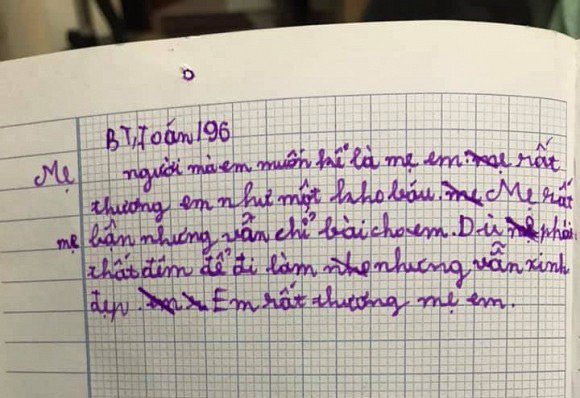 BT Toán 196
người mà em muốn kể là mẹ em. mẹ rất
Mẹ thương em như một kho báu. Mẹ rất
mẹ bận nhưng vẫn chỉ bài cho em. Dù phải
thất đêm để đi làm nhưng vẫn xinh
đẹp. Em rất thương mẹ em.